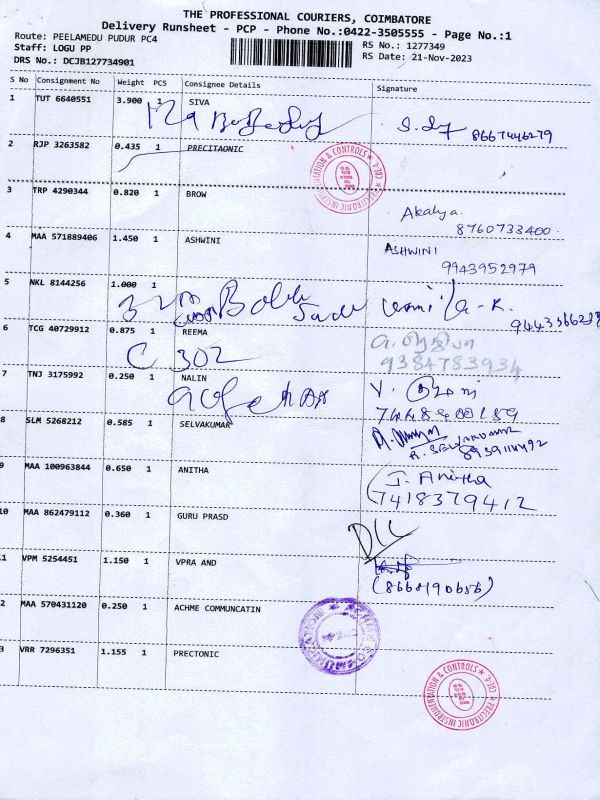 THE PROFESSIONAL COURIERS, COIMBATORE
Delivery Runsheet - PCP - Phone No.:0422-3505555 - Page No.:1
Route: PEELAMEDU PUDUR PC4
Staff: LOGU PP
DRS No.: DCJB127734901
RS No.: 1277349
RS Date: 21-Nov-2023
S No Consignment No Weight PCS Consignee Details Signature
1 TUT 6640551 3.900 1 SIVA
8667446279
2 RJP 3263582 0.435 1 PRECITAONIC
PRECITRONIC INSTRUMENTATION & CONTROLS
3 TRP 4290344 0.820 1 BROW
Akalya.
8760733400
4 MAA 571889406 1.450 1 ASHWINI
ASHWINI
9943952979
5 NKL 8144256 1.000 1
6 TCG 40729912 0.875 1 REEMA
C 302
9384783934
7 TNJ 3175992 0.250 1 NALIN
8 SLM 5268212 0.585 1 SELVAKUMAR
R. SELVAKUMAR
9 MAA 100963844 0.650 1 ANITHA
J. Anitha
7418379412
10 MAA 862479112 0.360 1 GURU PRASD
11 VPM 5254451 1.150 1 VPRA AND
(8668190656)
2 MAA 570431120 0.250 1 ACHME COMMUNCATIN
3 VRR 7296351 1.155 1 PRECTONIC
PRECITRONIC INSTRUMENTATION & CONTROLS